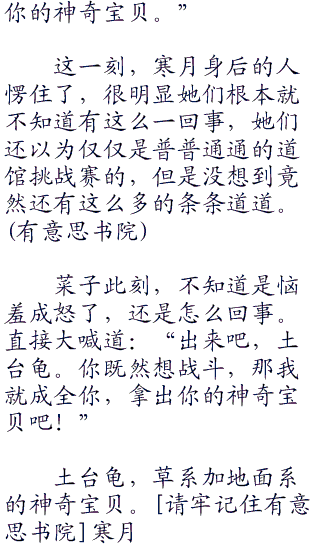 你的神奇宝贝。”
这一刻，寒月身后的人
愣住了，很明显她们根本就
不知道有这么一回事，她们
还以为仅仅是普普通通的道
馆挑战赛的，但是没想到竟
然还有这么多的条条道道。
(有意思书院)
菜子此刻，不知道是恼
羞成怒了，还是怎么回事。
直接大喊道：“出来吧，土
台龟。你既然想战斗，那我
就成全你，拿出你的神奇宝
贝吧！”
土台龟，草系加地面系
的神奇宝贝。[请牢记住有意
思书院]寒月